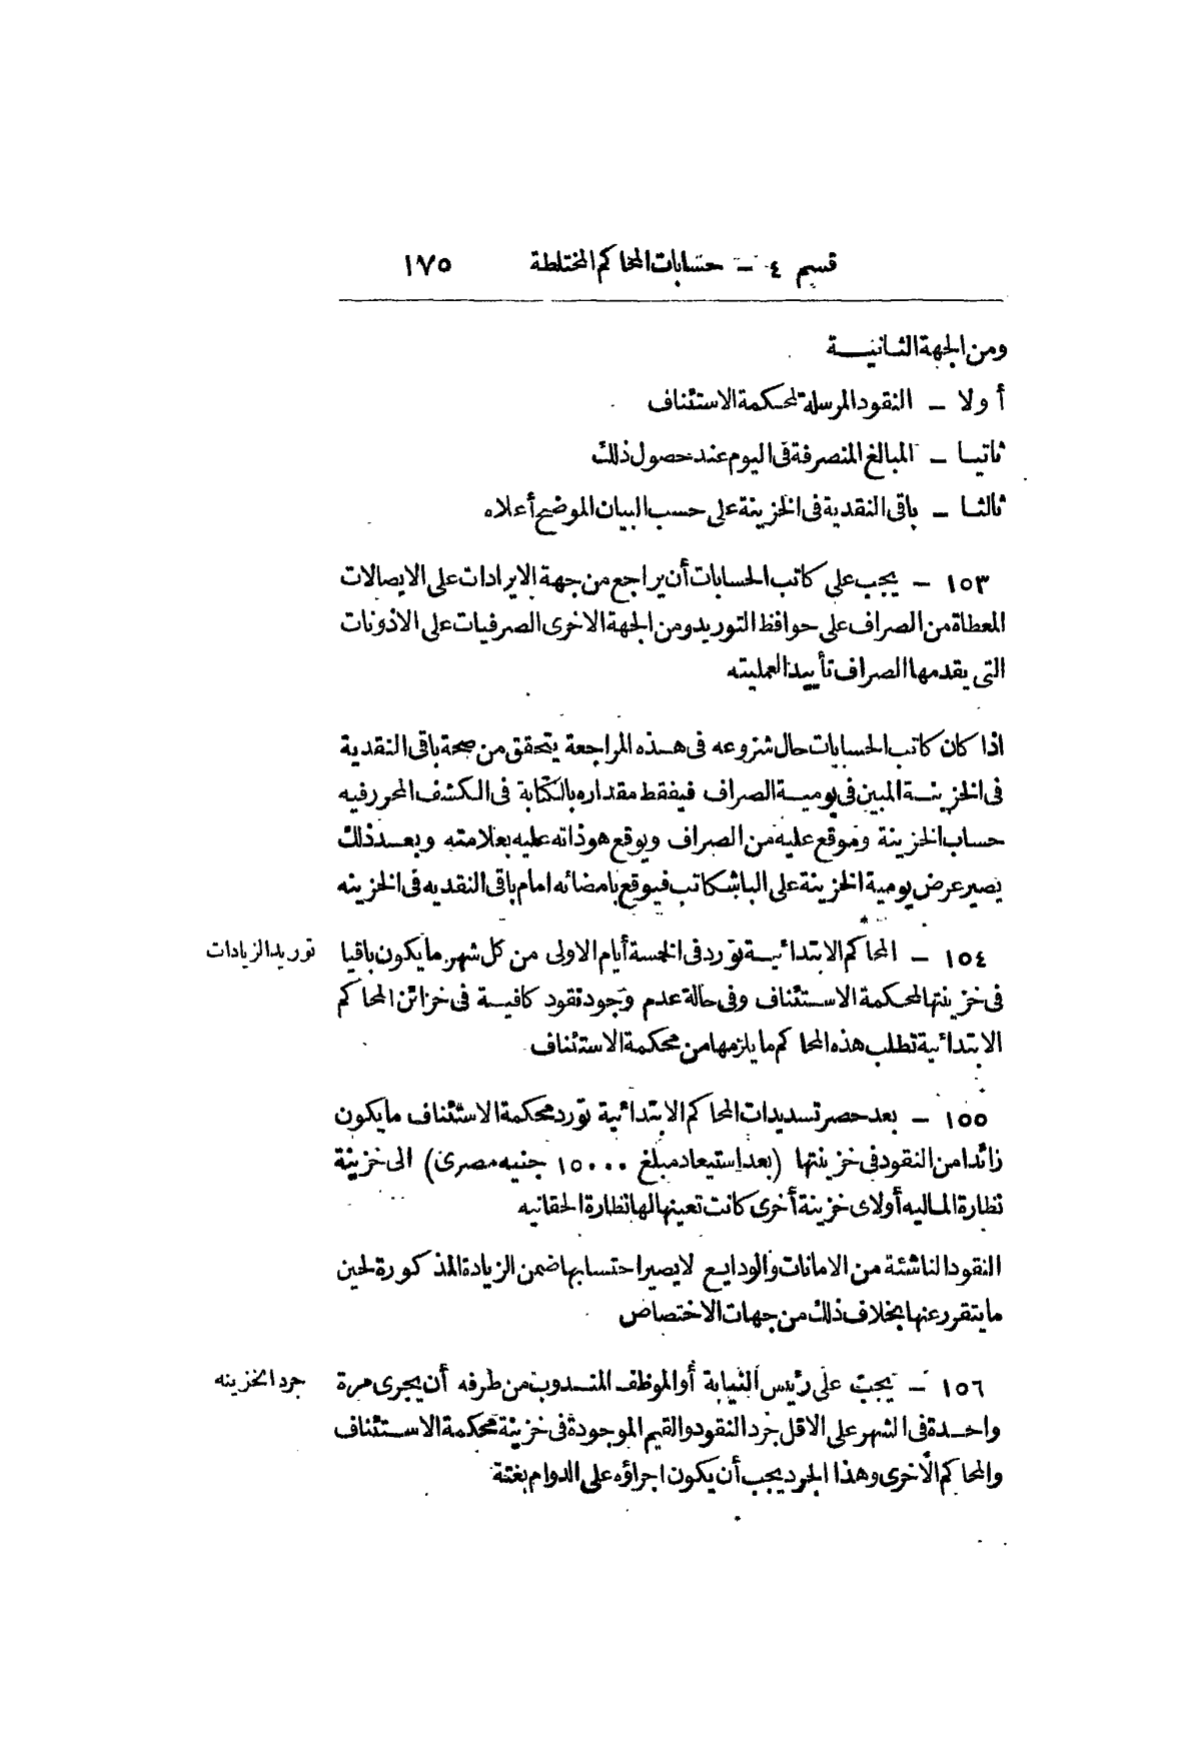 قسم ٤ – حسابات المحاكم المختلطة ١٧٥
ومن الجهة الثانية
أولا – النقود المرسلة لمحكمة الاستئناف
ثانيا – المبالغ المنصرفة فى اليوم عند حصول ذلك
ثالثا – باقى النقدية فى الخزينة على حسب البيان الموضح أعلاه
١٥٣ – يجب على كاتب الحسابات أن يراجع من جهة الايرادات على الايصالات
المعطاة من الصراف على حوافظ التوريد ومن الجهة الاخرى الصرفيات على الاذونات
التى يقدمها الصراف تأييدا لعمليته
اذا كان كاتب الحسابات حال شروعه فى هذه المراجعة يتحقق من صحة باقى النقدية
فى الخزينة المبين فى يومية الصراف فيفقط مقداره بالكتابة فى الكشف المحرر فيه
حساب الخزينة وموقع عليه من الصراف ويوقع هو ذاته عليه بعلامته وبعد ذلك
يصير عرض يومية الخزينة على الباشكاتب فيوقع بامضائه امام باقى النقديه فى الخزينه
١٥٤ – المحاكم الابتدائية تورد فى الخمسة أيام الاولى من كل شهر ما يكون باقيا
توريد الزيادات
فى خزينتها لمحكمة الاستئناف وفى حالة عدم وجود نقود كافية فى خزائن المحاكم
الابتدائية تطلب هذه المحاكم ما يلزمها من محكمة الاستئناف
١٥٥ – بعد حصر تسديدات المحاكم الابتدائية تورد محكمة الاستئناف ما يكون
زائدا من النقود فى خزينتها (بعد استيعاد مبلغ ١٥٠٠٠ جنيه مصرى) الى خزينة
نظارة الماليه أو لاى خزينة أخرى كانت تعينها لها نظارة الحقانيه
النقود الناشئة من الامانات والودايع لا يصير احتسابها ضمن الزيادة المذكورة لحين
ما يتقرر عنها بخلاف ذلك من جهات الاختصاص
١٥٦ – يجب على رئيس النيابة أو الموظف المندوب من طرفه أن يجرى مرة
جرد الخزينه
واحدة فى الشهر على الاقل جرد النقود والقيم الموجودة فى خزينة محكمة الاستئناف
والمحاكم الاخرى وهذا الجرد يجب أن يكون اجراؤه على الدوام بغتة